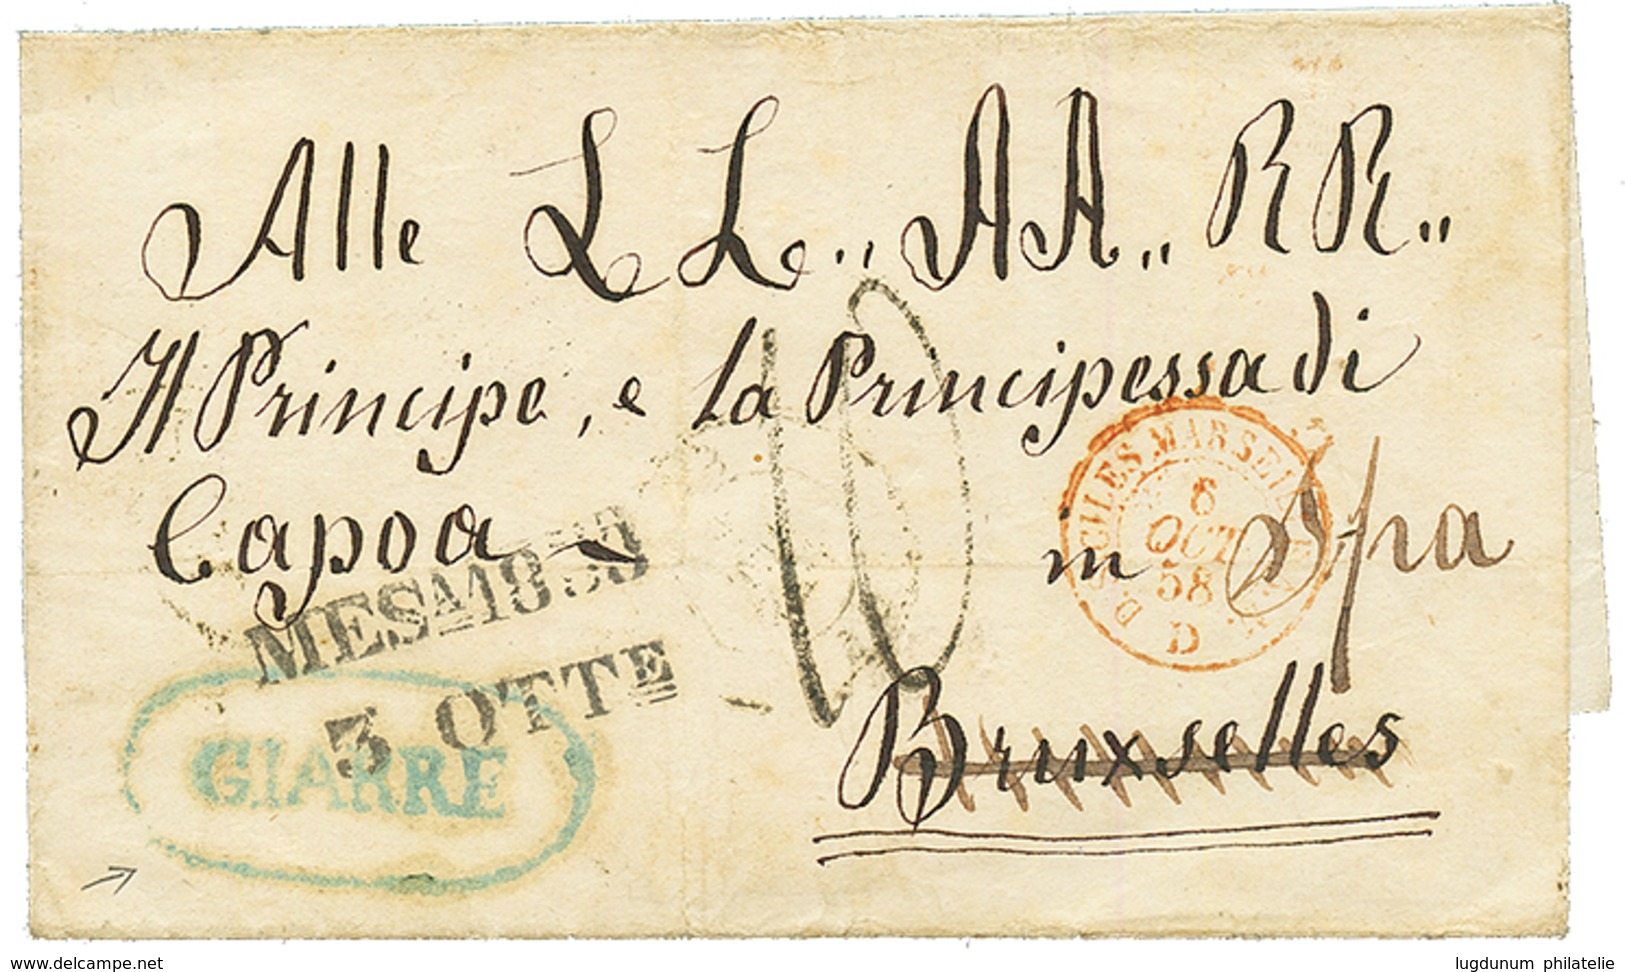 Alle LL.. AA.. RR..
Il Principe, e la Principessa di
Capoa
in Spa
Bruxselles
MESA 1858
3 OTTE
GIARRE
10
D. SICILES MARSEILLE
6
OCT
58
D
delcampe.net
lugdunum philatelie